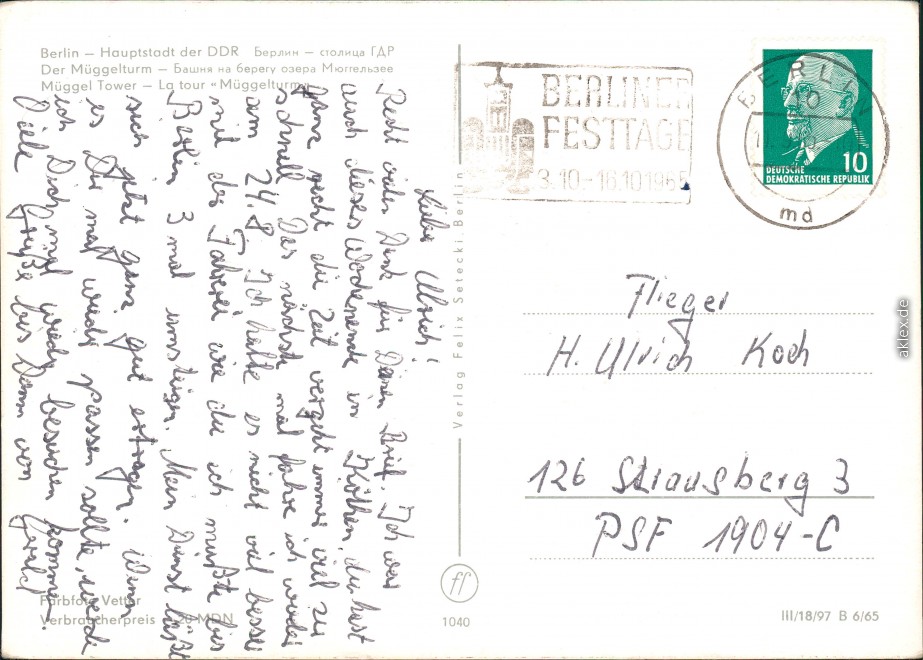 Berlin – Hauptstadt der DDR Берлин – столица ГДР
Der Müggelturm – Башня на берегу озера Мюггельзее
Müggel Tower – La tour "Müggelturm"
Lieber Ulrich!
Recht vielen Dank für Deinen Brief. Ich war
auch dieses Wochenende in Köthen, du hast
ganz recht die Zeit vergeht immer viel zu
schnell. Das nächste mal fahre ich wieder
am 24.8. Ich hatte es nicht viel besser
mit der Fahrerei wie du ich mußte bis
Berlin 3 mal umsteigen. Mein Dienst läßt
sich jetzt ganz gut ertragen. Wenn
es Dir mal wieder passen sollte, werde
ich Dich mal wieder besuchen kommen.
Viele Grüße bis Dann von
Gerald
Farbfoto Vetter
Verbraucherpreis 20 MDN
Verlag Felix Setecki Berlin
ff
1040
BERLINER
FESTTAGE
3.10.-18.10.1965
BERLIN
10
md
10
DEUTSCHE
DEMOKRATISCHE REPUBLIK
Flieger
H. Ulrich Koch
126 Strausberg 3
PSF 1904-C
III/18/97 B 6/65
aklex.de